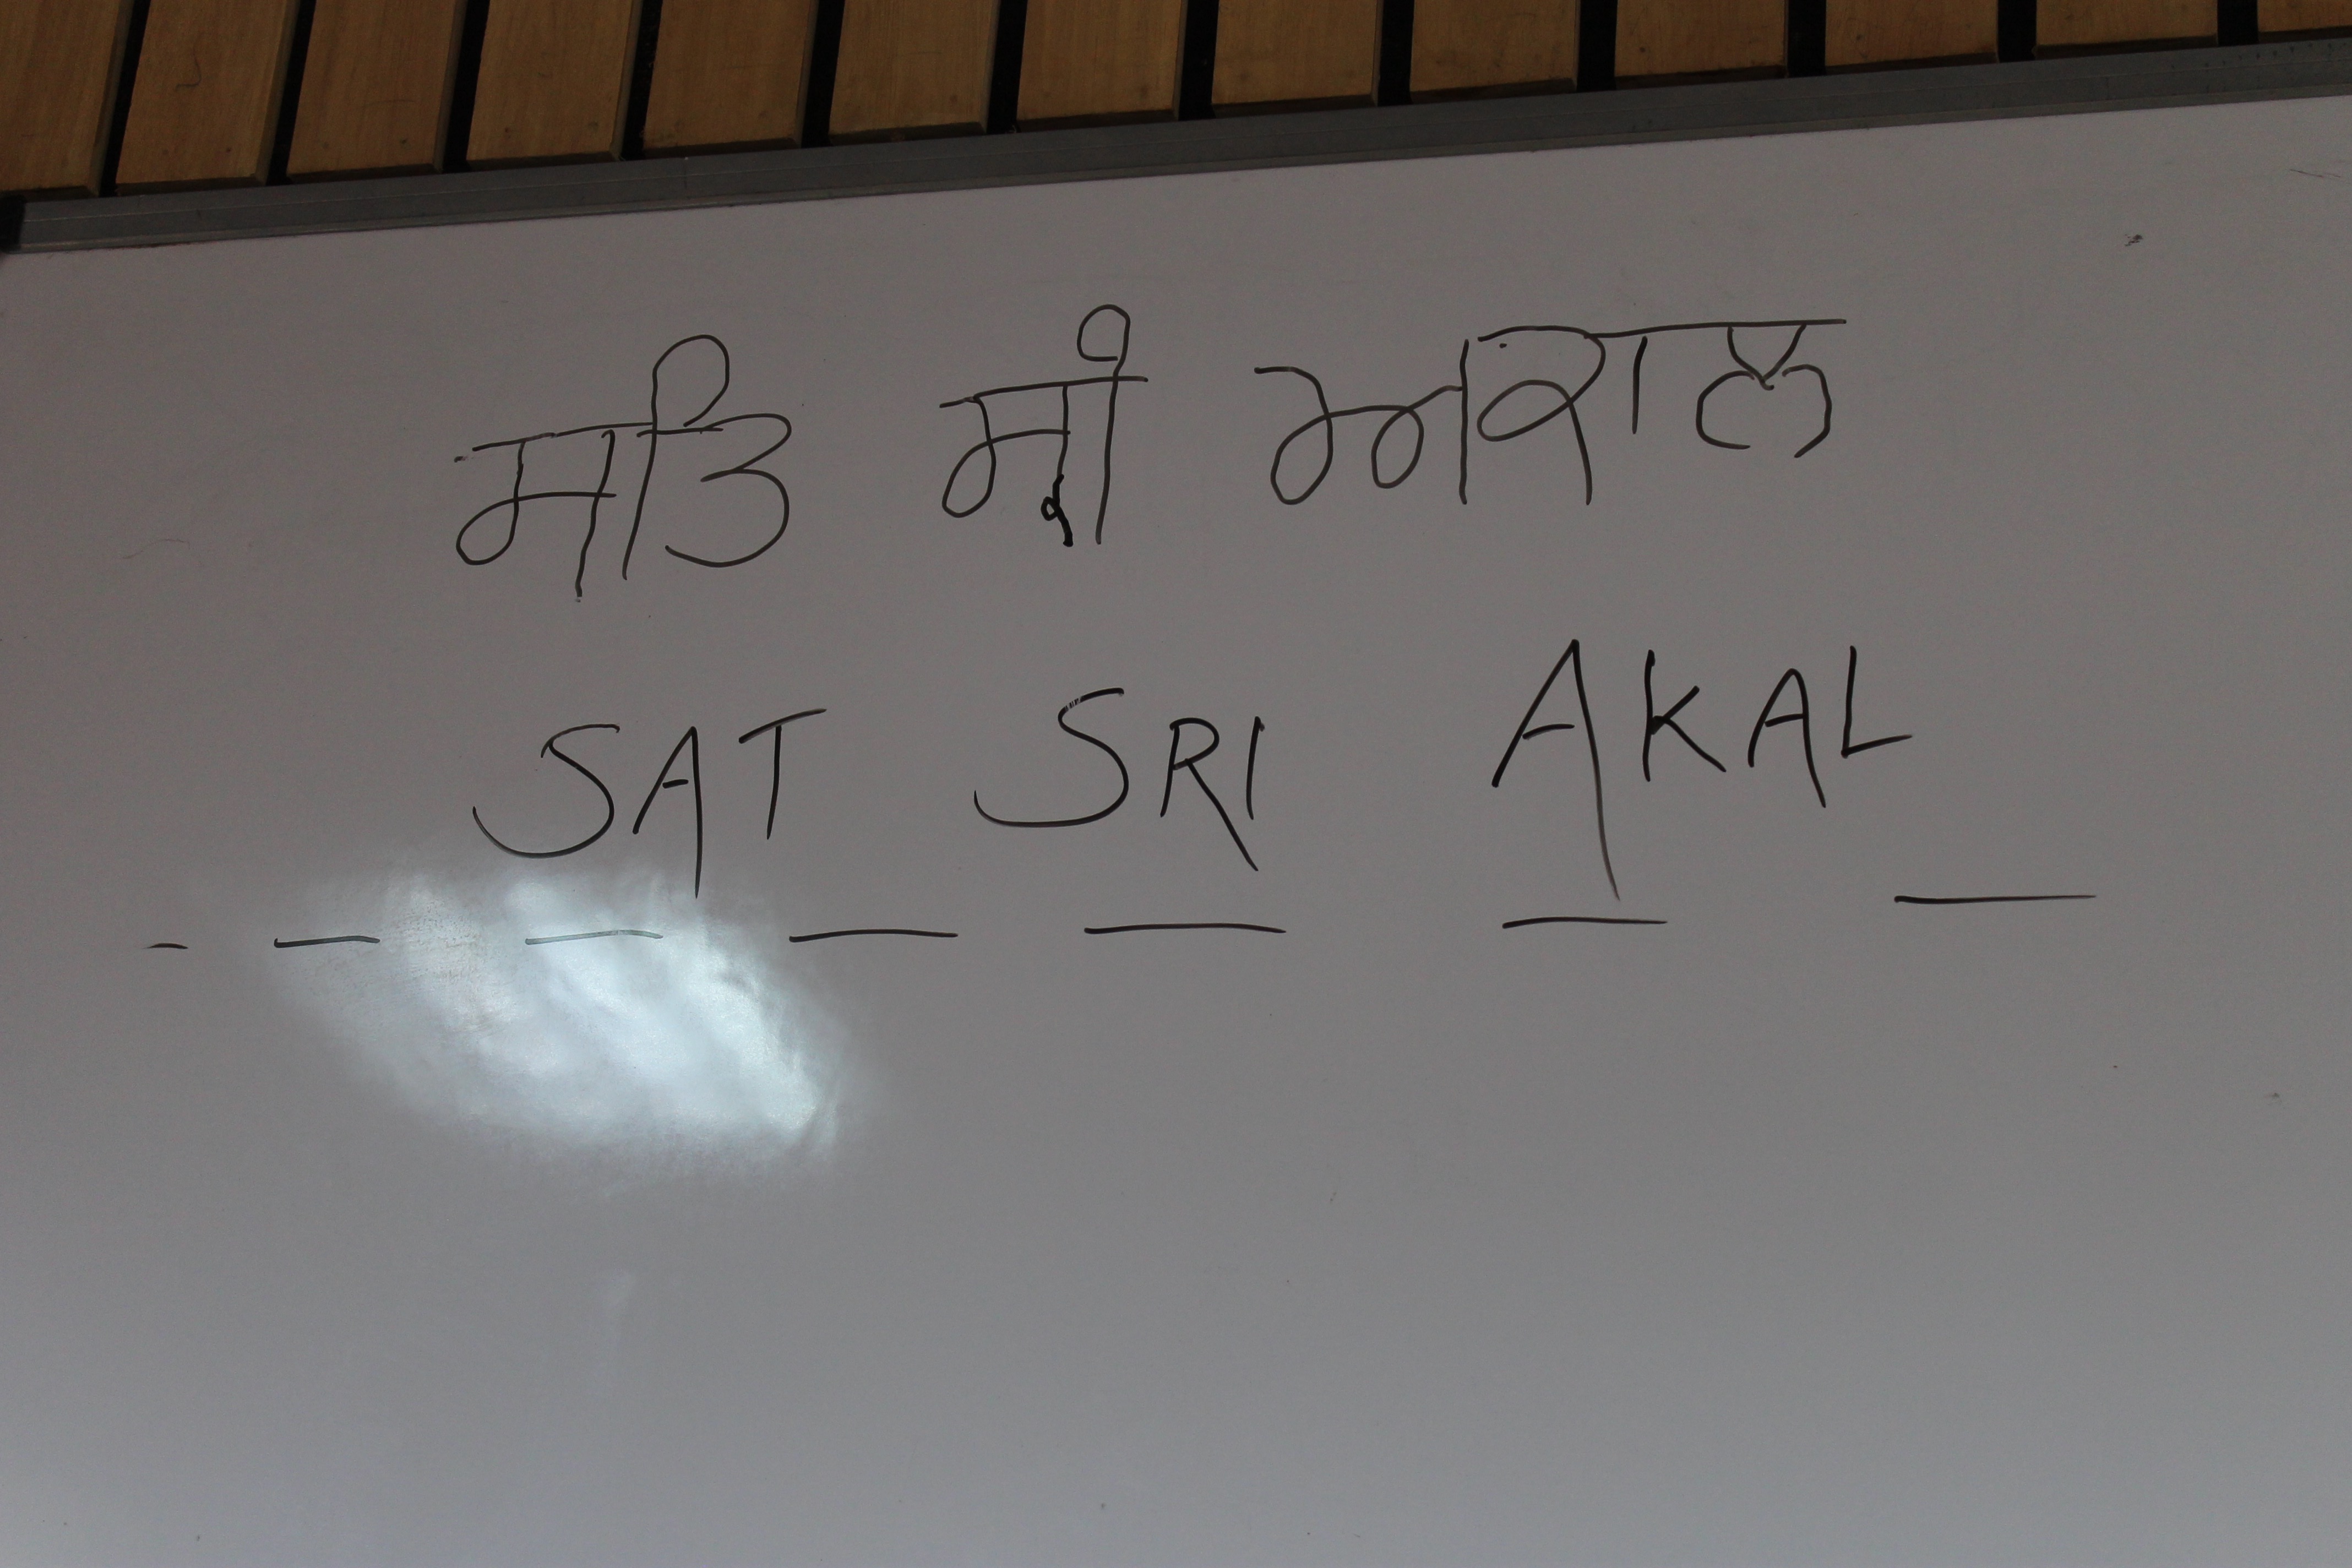 ਸਤਿ ਸ੍ਰੀ ਅਕਾਲ
SAT SRI AKAL